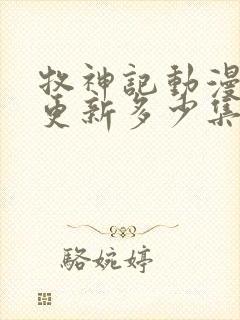 牧神記動漫
更新多少集
駱婉婷